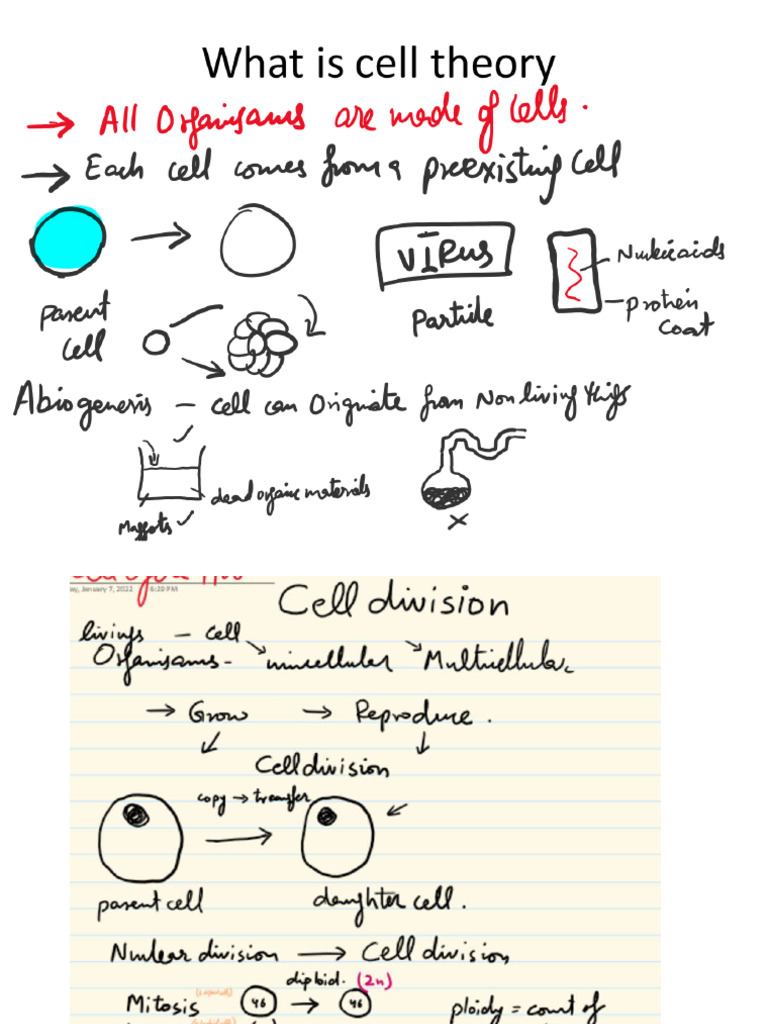 What is cell theory
→ All Organisams are made of Cells.
→ Each cell comes from a preexisting Cell
VIRUS
Nucleicaids
parent cell
Particle
protein coat
Abiogenesis – cell can Originate from Non living things
dead organic materials
Maggots ✓
x
January 7, 2022 6:20 PM
Cell division
livings – cell
Organisams – unicellular Multicellular
→ Grow → Reproduce.
Cell division
copy → transfer
parent cell daughter cell.
Nuclear division → Cell division
diploid. (2n)
Mitosis 46 → 46 ploidy = count of